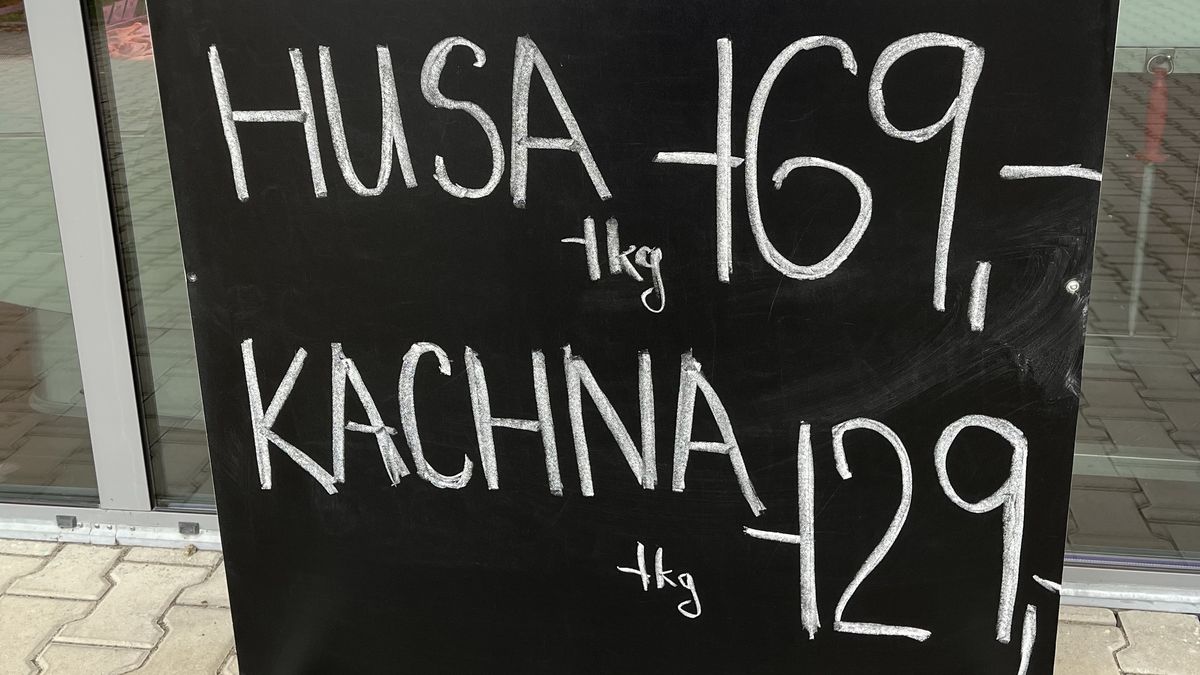 HUSA 169,-
1kg
KACHNA 129,-
1kg